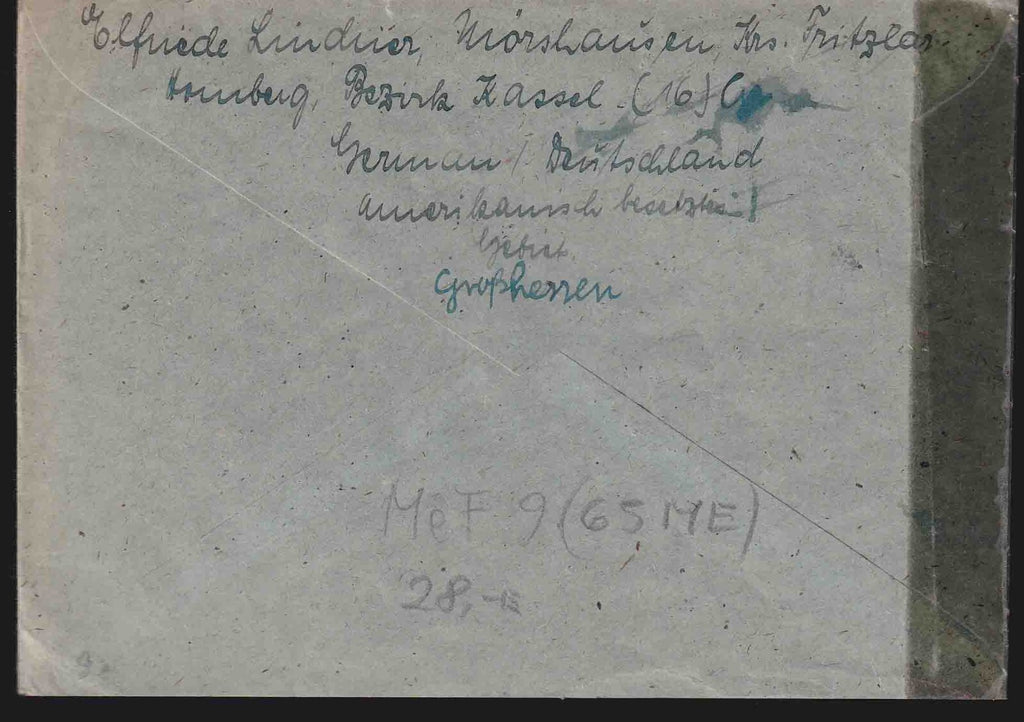 Elfriede Lindner, Mörshausen, Krs. Fritzlar-
Homberg, Bezirk Kassel. (16)
German / Deutschland
amerikanisch besetztes
Gebiet
Großhessen
MeF 9 (65 ME)
28,-